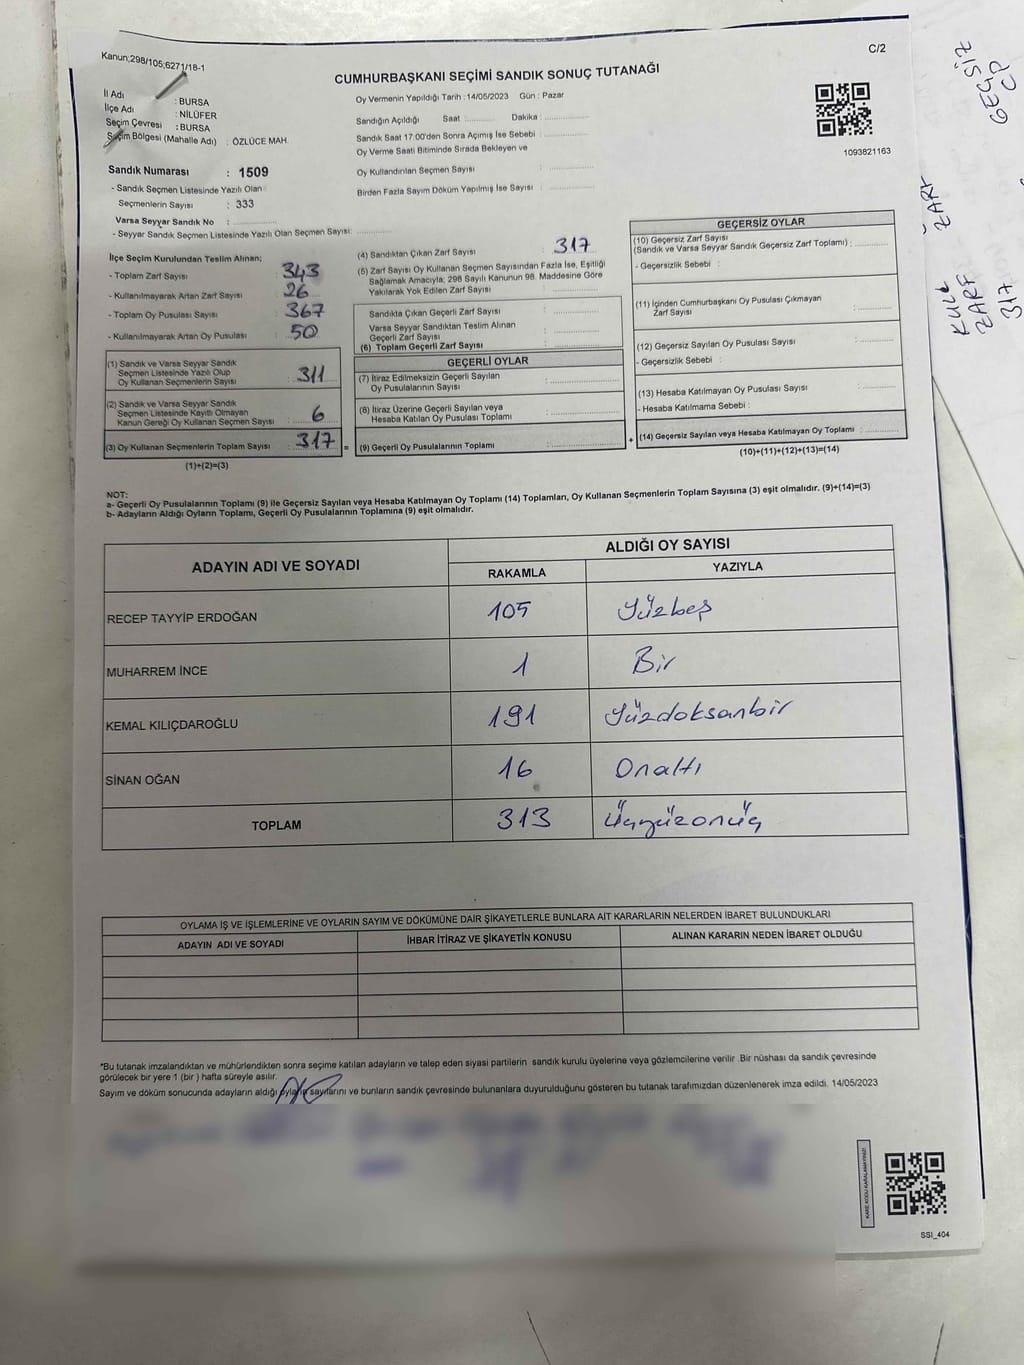 Kanun;298/105;6271/18-1
C/2
CUMHURBAŞKANI SEÇİMİ SANDIK SONUÇ TUTANAĞI
İl Adı : BURSA
İlçe Adı : NİLÜFER
Seçim Çevresi : BURSA
Seçim Bölgesi (Mahalle Adı) : ÖZLÜCE MAH.
Sandık Numarası : 1509
- Sandık Seçmen Listesinde Yazılı Olan
Seçmenlerin Sayısı : 333
Varsa Seyyar Sandık No :
- Seyyar Sandık Seçmen Listesinde Yazılı Olan Seçmen Sayısı:
Oy Vermenin Yapıldığı Tarih :14/05/2023 Gün : Pazar
Sandığın Açıldığı Saat : Dakika :
Sandık Saat 17.00'den Sonra Açımış İse Sebebi :
Oy Verme Saati Bitiminde Sırada Bekleyen ve
Oy Kullandırılan Seçmen Sayısı :
Birden Fazla Sayım Döküm Yapılmış İse Sayısı :
1093821163
İlçe Seçim Kurulundan Teslim Alınan;
- Toplam Zarf Sayısı : 343
- Kullanılmayarak Artan Zarf Sayısı : 26
- Toplam Oy Pusulası Sayısı : 367
- Kullanılmayarak Artan Oy Pusulası : 50
(1) Sandık ve Varsa Seyyar Sandık
Seçmen Listesinde Yazılı Olup
Oy Kullanan Seçmenlerin Sayısı : 311
(2) Sandık ve Varsa Seyyar Sandık
Seçmen Listesinde Kayıtlı Olmayan
Kanun Gereği Oy Kullanan Seçmen Sayısı : 6
(3) Oy Kullanan Seçmenlerin Toplam Sayısı : 317 =
(1)+(2)=(3)
(4) Sandıktan Çıkan Zarf Sayısı : 317
(5) Zarf Sayısı Oy Kullanan Seçmen Sayısından Fazla İse, Eşitliği
Sağlamak Amacıyla; 298 Sayılı Kanunun 98. Maddesine Göre
Yakılarak Yok Edilen Zarf Sayısı :
Sandıkta Çıkan Geçerli Zarf Sayısı :
Varsa Seyyar Sandıktan Teslim Alınan
Geçerli Zarf Sayısı :
(6) Toplam Geçerli Zarf Sayısı :
GEÇERLİ OYLAR
(7) İtiraz Edilmeksizin Geçerli Sayılan
Oy Pusulalarının Sayısı :
(8) İtiraz Üzerine Geçerli Sayılan veya
Hesaba Katılan Oy Pusulası Toplamı :
(9) Geçerli Oy Pusulalarının Toplamı : +
GEÇERSİZ OYLAR
(10) Geçersiz Zarf Sayısı
(Sandık ve Varsa Seyyar Sandık Geçersiz Zarf Toplamı) :
- Geçersizlik Sebebi :
(11) İçinden Cumhurbaşkanı Oy Pusulası Çıkmayan
Zarf Sayısı :
(12) Geçersiz Sayılan Oy Pusulası Sayısı :
- Geçersizlik Sebebi :
(13) Hesaba Katılmayan Oy Pusulası Sayısı :
- Hesaba Katılmama Sebebi :
(14) Geçersiz Sayılan veya Hesaba Katılmayan Oy Toplamı :
(10)+(11)+(12)+(13)=(14)
NOT:
a- Geçerli Oy Pusulalarının Toplamı (9) ile Geçersiz Sayılan veya Hesaba Katılmayan Oy Toplamı (14) Toplamları, Oy Kullanan Seçmenlerin Toplam Sayısına (3) eşit olmalıdır. (9)+(14)=(3)
b- Adayların Aldığı Oyların Toplamı, Geçerli Oy Pusulalarının Toplamına (9) eşit olmalıdır.
ADAYIN ADI VE SOYADI
ALDIĞI OY SAYISI
RAKAMLA YAZIYLA
RECEP TAYYİP ERDOĞAN 105 Yüzbeş
MUHARREM İNCE 1 Bir
KEMAL KILIÇDAROĞLU 191 Yüzdoksanbir
SİNAN OĞAN 16 Onaltı
TOPLAM 313 Üçyüzonüç
OYLAMA İŞ VE İŞLEMLERİNE VE OYLARIN SAYIM VE DÖKÜMÜNE DAİR ŞİKAYETLERLE BUNLARA AİT KARARLARIN NELERDEN İBARET BULUNDUKLARI
ADAYIN ADI VE SOYADI İHBAR İTİRAZ VE ŞİKAYETİN KONUSU ALINAN KARARIN NEDEN İBARET OLDUĞU
*Bu tutanak imzalandıktan ve mühürlendikten sonra seçime katılan adayların ve talep eden siyasi partilerin sandık kurulu üyelerine veya gözlemcilerine verilir .Bir nüshası da sandık çevresinde
görülecek bir yere 1 (bir ) hafta süreyle asılır.
Sayım ve döküm sonucunda adayların aldığı oyların sayılarını ve bunların sandık çevresinde bulunanlara duyurulduğunu gösteren bu tutanak tarafımızdan düzenlenerek imza edildi. 14/05/2023
KARE KODU KARALAMAYINIZ!
SSI_404
GEÇSİZ
ZARF
KULL
ZARF
317